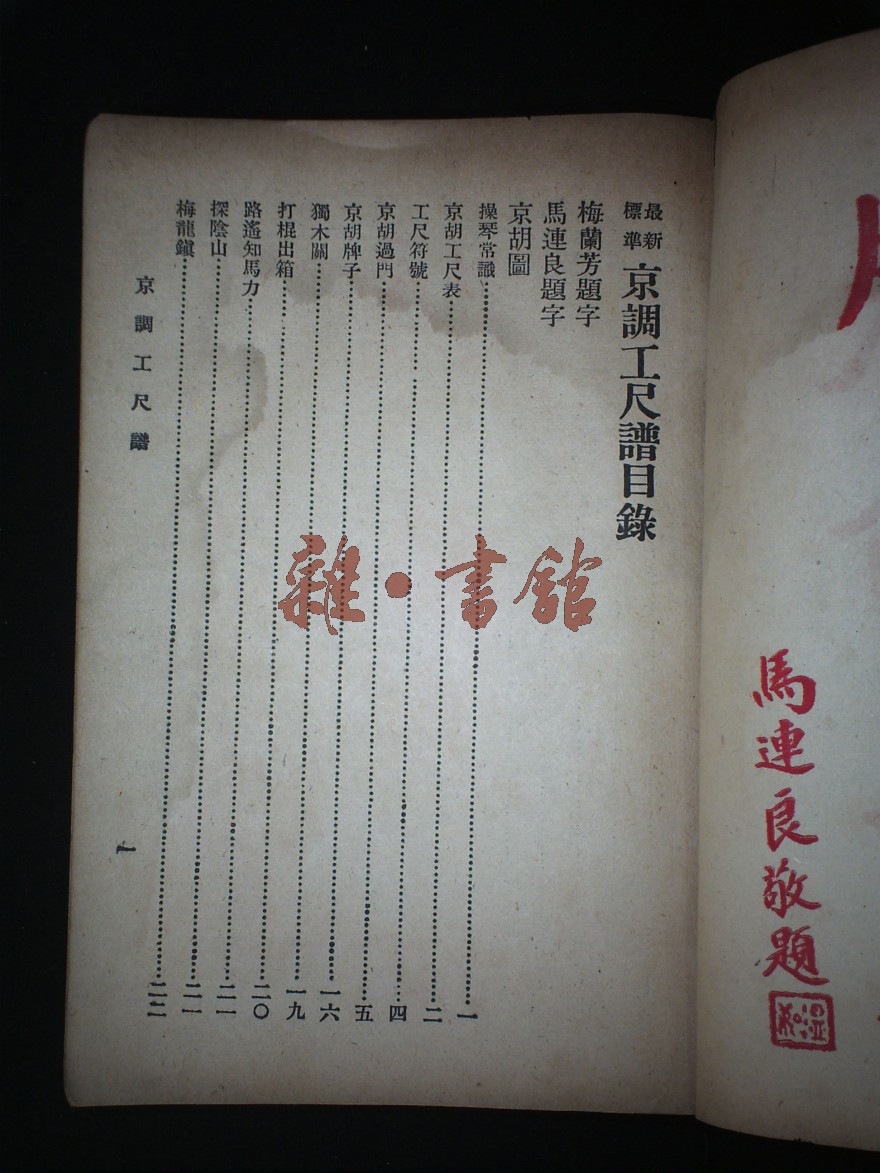 最新
標準
京調工尺譜目錄
梅蘭芳題字
馬連良題字
京胡圖
操琴常識……一
京胡工尺表……二
工尺符號……四
京胡過門……五
京胡牌子……一六
獨木關……一九
打棍出箱……二〇
路遙知馬力……二一
探陰山……二一
梅龍鎮……二二
京調工尺譜
一
馬連良敬題
雜·書館